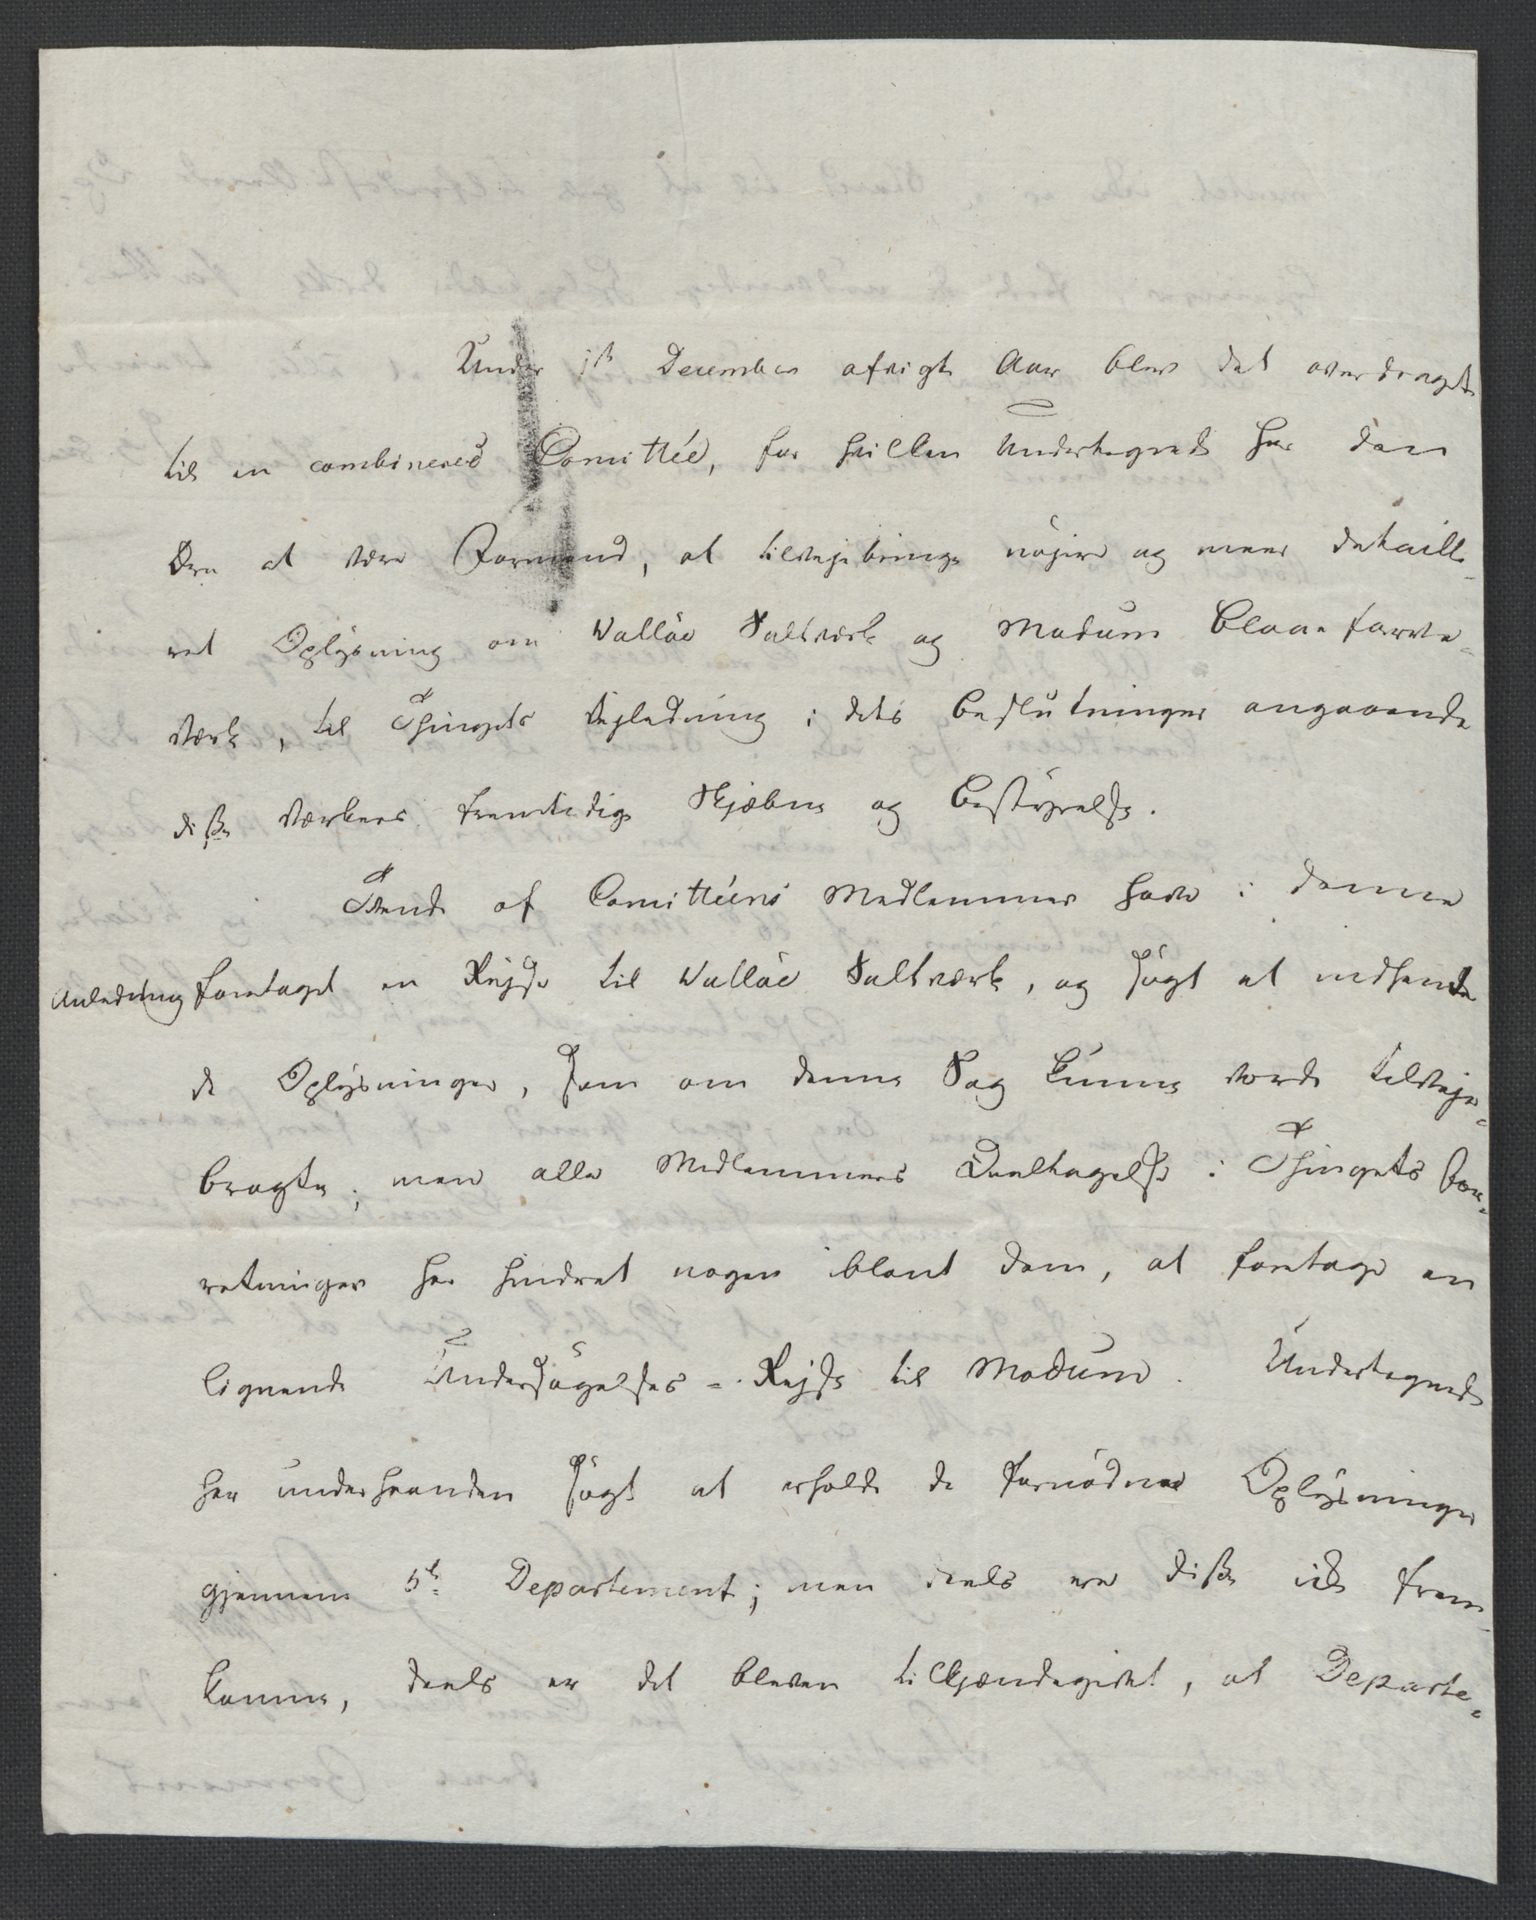 Under 1ste December afvigte Aar blev det overdraget
til en combinered Comittée, for hvilken Undertegnede har den
Ære at være Formand, at tilvejebringe nøjere og meer detaille-
ret Oplysning om Valløe Saltværk og Modums Blaae farve-
værk, til Thingets Vejledning i dets Beslutninger angaaende
disse Værkers fremtidige Skjæbne og Bestyrelse.
Trende af Comitteens Medlemmer have i denne
Anledning foretaget en Rejse til Valløe Saltværk, og søgt at indhente
de Oplysninger, som om denne Sag kunne vorde tilveje-
bragte; men alle Medlemmers Deeltagelse i Thingets For-
retninger har hindret nogen iblant dem, at foretage en
lignende Undersøgelses-Rejse til Modum. Undertegnede
har underhaanden søgt at erholde de fornødne Oplysninger
gjennem 5te Departement; men deels ere disse ikke frem-
komne, deels er det bleven tilkjendegivet, at Departe-